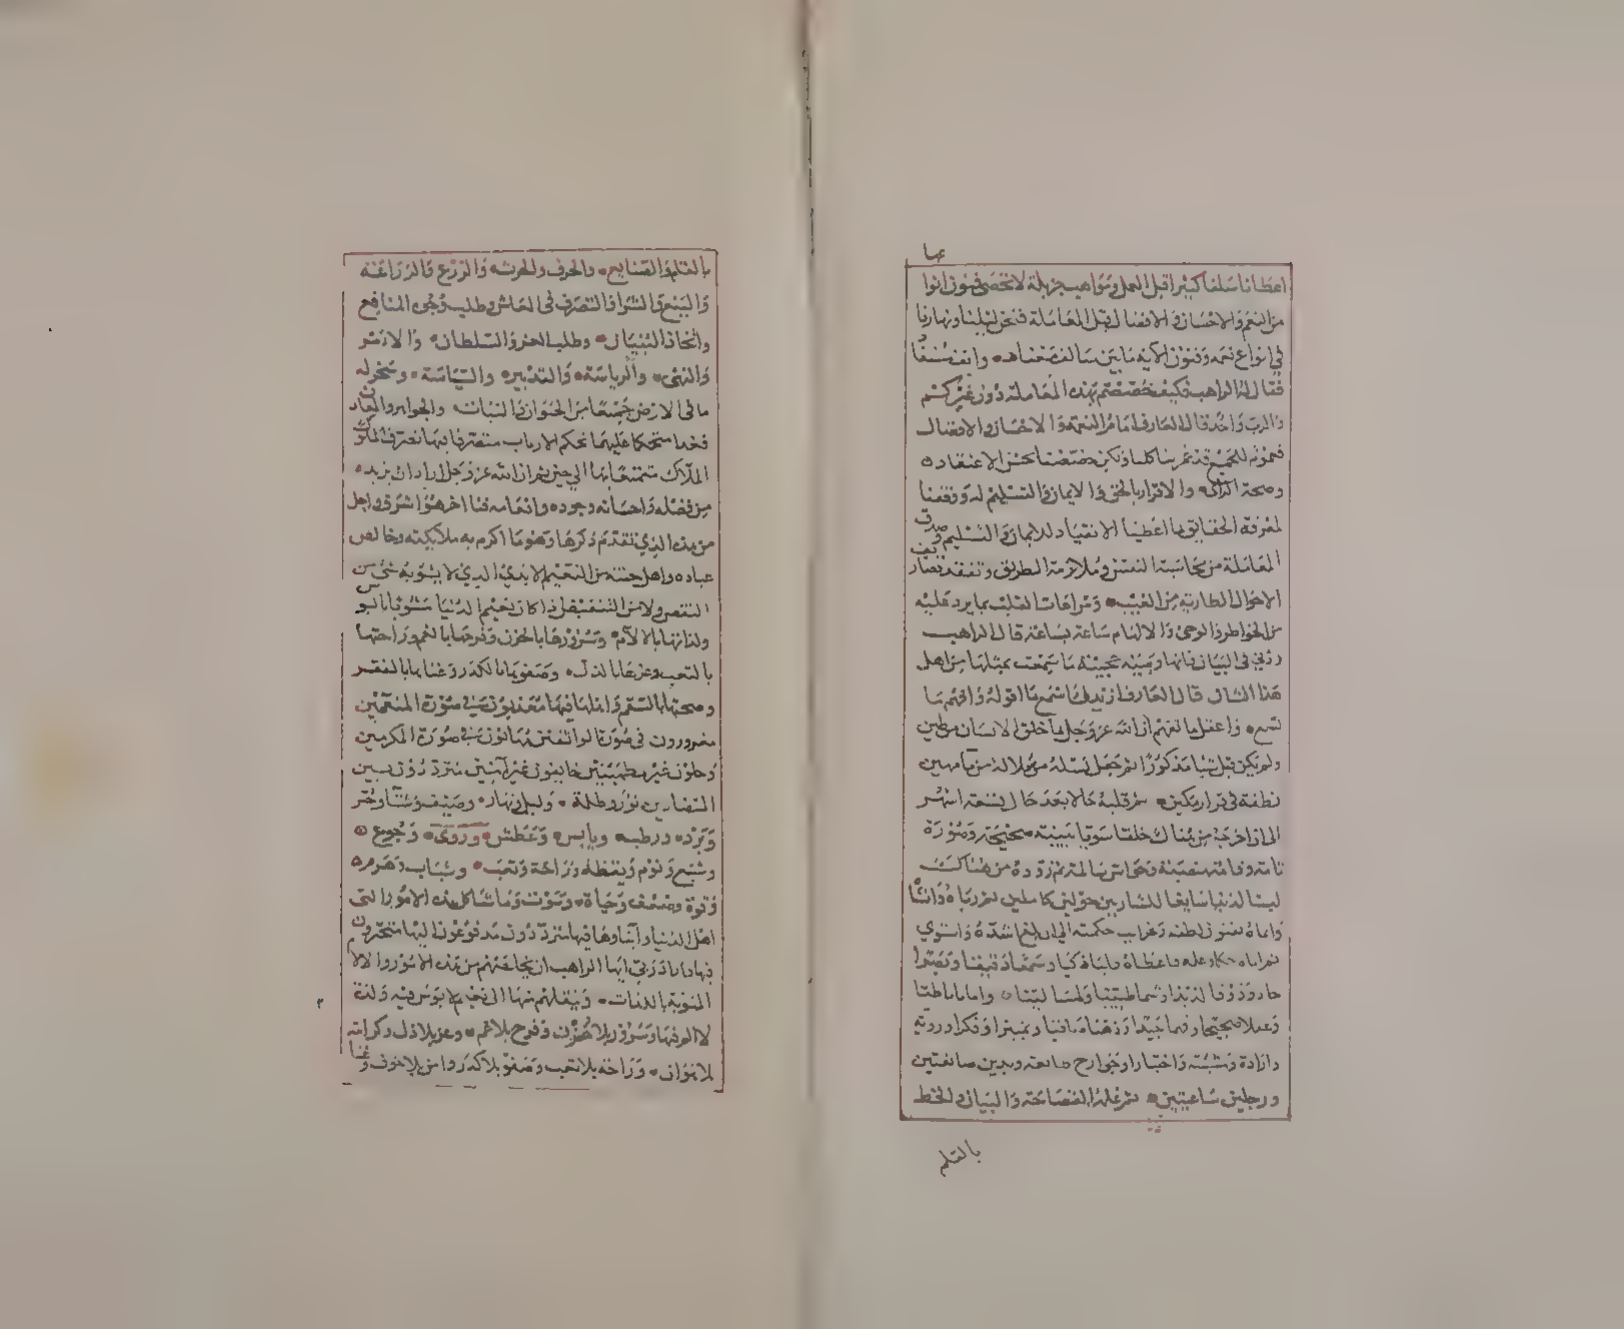 بها
اعطانا سلفا كثيرا قبل العمل ومواهب جزيلة لا تحصى فنون انوا
من النعم والاحسان والافضال قبل المعاملة فنحن ليلنا ونهارنا
في انواع نعمه وفنون الآيه ما بين سالف معتاد وانف مستقا
فقال له الراهب فكيف خصصتم بهذه المعاملة دون غيركم
والرب واحد قال العارف اما النعمة والاحسان والافضال
فعموم للجميع قد غمرتنا كلنا ولكن خصصنا بحسن الاعتقاد
وصحة الراى والاقرار بالحق والايمان والتسليم له ووفقنا
لمعرفة الحقائق بما اعطينا الانقياد للايمان والتسليم وصدق
المعاملة من محاسبة النفس وملازمة الطريق وتفقد تصاريف
الاحوال الطارية من الغيب ومراعات القلب بما يرد عليه
من الخواطر والوحي والالهام ساعة بساعة قال الراهب
زدني في البيان فانها وصية عجيبة ما سمعت بمثلها من اهل
هذا الشان قال العارف ازيدك اسمع ما اقوله وافهم ما
تسمع واعقل ما تفهم ان الله عز وجل لما خلق الانسان من طين
ولم يكن قبل شيا مذكورا ثم جعل نسله من سلالة من ما مهين
نطفة في قرار مكين ثم قلبه حالا بعد حال تسعة اشهر
الى ان اخرجه من هناك خلقا سويا ببنية صحيحة وصورة
تامة وقامة منتصبة وحواس سالمة ثم زوده من هناك
لبنا لذيذا سايغا للشاربين حولين كاملين ثم رباه وانشأ
وانماه بفنون لطفه وغرايب حكمته الى ان بلغ اشده واستوى
ثم اتاه حكما وعلما واعطاه قلبا ذكيا وسمعا دقيقا وبصرا
حادا وذوقا لذيذا وشما طيبا ولمسا لينا ولسانا ناطقا
وعقلا صحيحا وفهما جيدا وذهنا صافيا وتمييزا وفكرا وروية
وارادة ومشية واختيارا وجوارح طايعة ويدين صانعتين
ورجلين ساعيتين ثم علمه الفصاحة والبيان والخط
بالقلم
بالقلم والصنايع والحرف والحرث والزرع والزراعة
والبيع والشرا والتصرف في المعاش وطلب وجوه المنافع
واتخاذ البنيان وطلب العز والسلطان والامر
والنهي والرياسة والتدبير والسياسة وسخر له
ما في الارض جميعا من الحيوان والنبات والجواهر والمعادن
فغدا متحكما عليها تحكم الارباب متصرفا فيها تصرف الملوك
الملاك متمتعا بها الى حين ثم ان الله عز وجل اراد ان يزيده
من فضله واحسانه وجوده وانعامه فنا اخر هو اشرف واجل
من هذه الذي تقدم ذكرها وهو ما اكرم به ملايكته وخالص
عباده واهل جنته من النعيم الابدي الذي لا يشوبه شي من
النقص ولا من التنغيص اذ كان نعيم الدنيا مشوبا بالبوس
ولذاتها بالالام وسرورها بالحزن وفرحها بالغم وراحتها
بالتعب وعزها بالذل وصفوها بالكدر وغناها بالفقر
وصحتها بالسقم واهلها فيها معذبون في صورة المنعمين
مغرورون في صورة الواثقين مهانون في صورة المكرمين
وجلون غير مطمينين خايفون غير امنين مترددون بين
المتضادين نور وظلمة وليل ونهار وصيف وشتا وحر
وبرد ورطب ويابس وعطش وروى وجوع
وشبع ونوم ويقظة وراحة وتعب وشباب وهرم
وقوة وضعف وحياة وموت وما شاكل هذه الامور التي
اهل الدنيا وابناوها فيها مترددون مدفوعون اليها متحيرون
فيها فاراد ربي ايها الراهب ان يخلصهم من هذه الامور والالام
المشوبة باللذات وينقلهم منها الى نعيم لا بوس فيه ولذة
لا الم فيها وسرور بلا حزن وفرح بلا غم وعز بلا ذل وكرامة
بلا هوان وراحة بلا تعب وصفو بلا كدر وامن بلا خوف وغنا